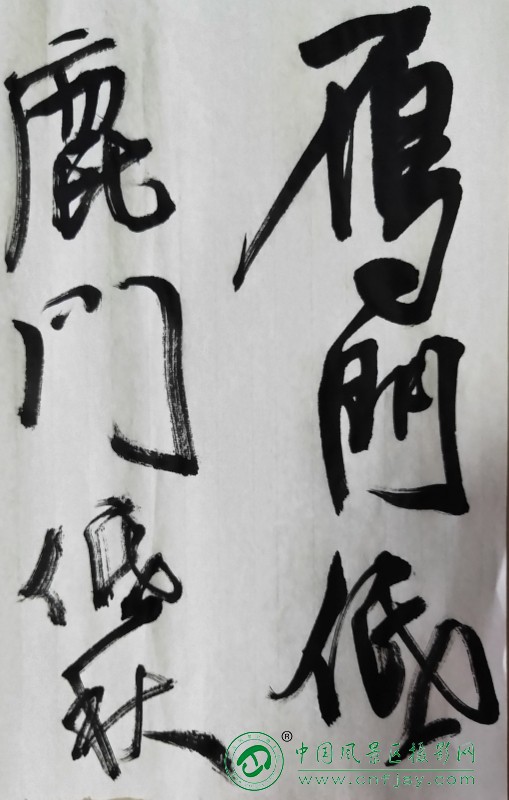 雁門低
鹿门低秋
®中国风景区摄影网
www.cnfjay.com